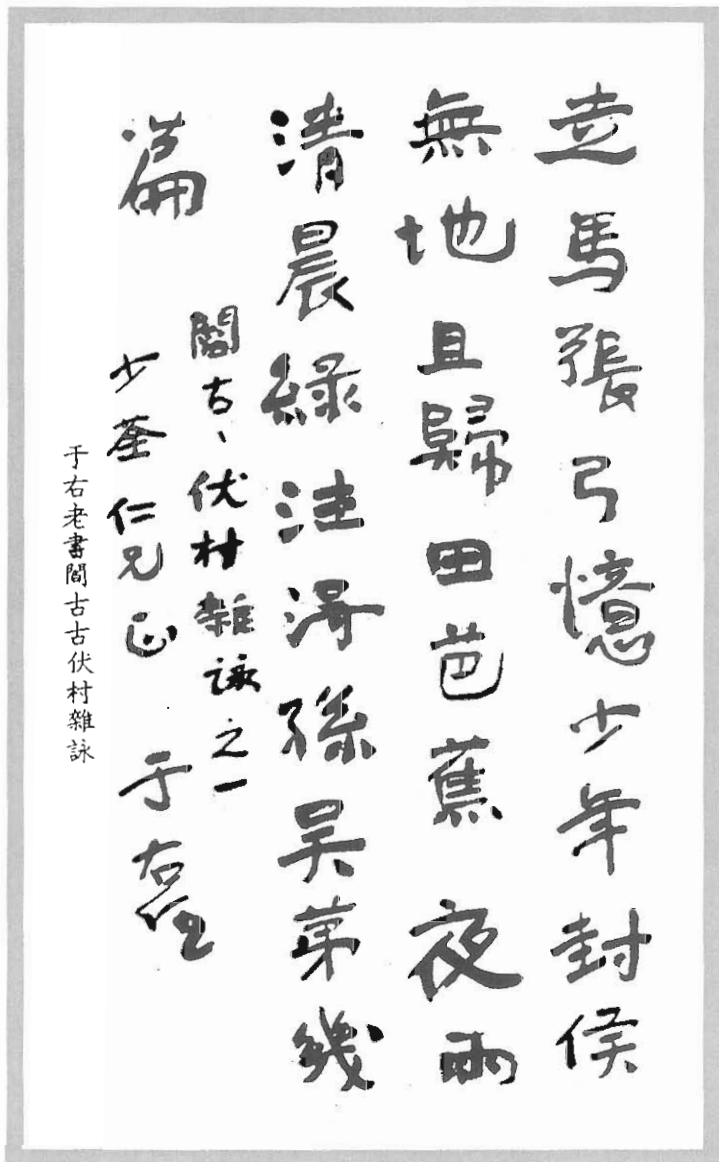 走馬張弓憶少年封侯
無地且歸田芭蕉夜雨
清晨綠注得孫吳第幾
篇
閻古〻伏村雜詠之一
少荃仁兄正
于右任
于右老書閻古古伏村雜詠